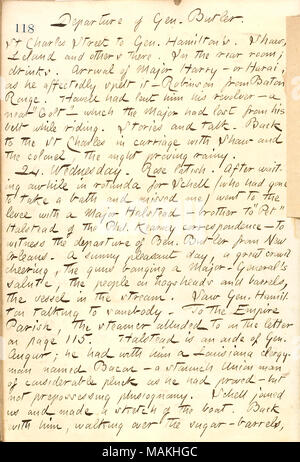 118
Departure of Gen. Butler.
St Charles Street to Gen. Hamilton's. Shaw,
Leland and others there. In the rear room;
drinks. Arrival of Major Harry - or Harai,
as he affectedly spelt it - Robinson from Baton
Rouge. Hamil had lent him his revolver - a
new "Colt" - which the Major had lost from his
belt while riding. Stories and talk. Back
to the St Charles in carriage with Shaw and
the colonel, the night proving rainy.
24. Wednesday. Rose latish. After wait-
ing awhile in rotunda for Schell (who had gone
to take a bath and missed me) went to the
levee with a Major Halstead - brother to "Pet"
Halstead of the Phil. Kearney correspondence - to
witness the departure of Ben. Butler from New
Orleans. A sunny pleasant day, a great crowd
cheering, the guns banging a Major-General's
salute, the people on hogsheads and barrels,
the vessel in the stream. Saw Gen. Hamil-
ton talking to somebody - To the Empire
Parish, the steamer alluded to in the letter
on page 115. Halstead is an aide of Gen.
Augur; he had with him a Louisiana clergy-
man named Bacon - a staunch Union man
of considerable pluck as he had proved - but
not prepossessing physiognomy. Schell joined
us and made a sketch of the boat. Back
with him, walking over the sugar-barrels,
alamy
MAKHGC